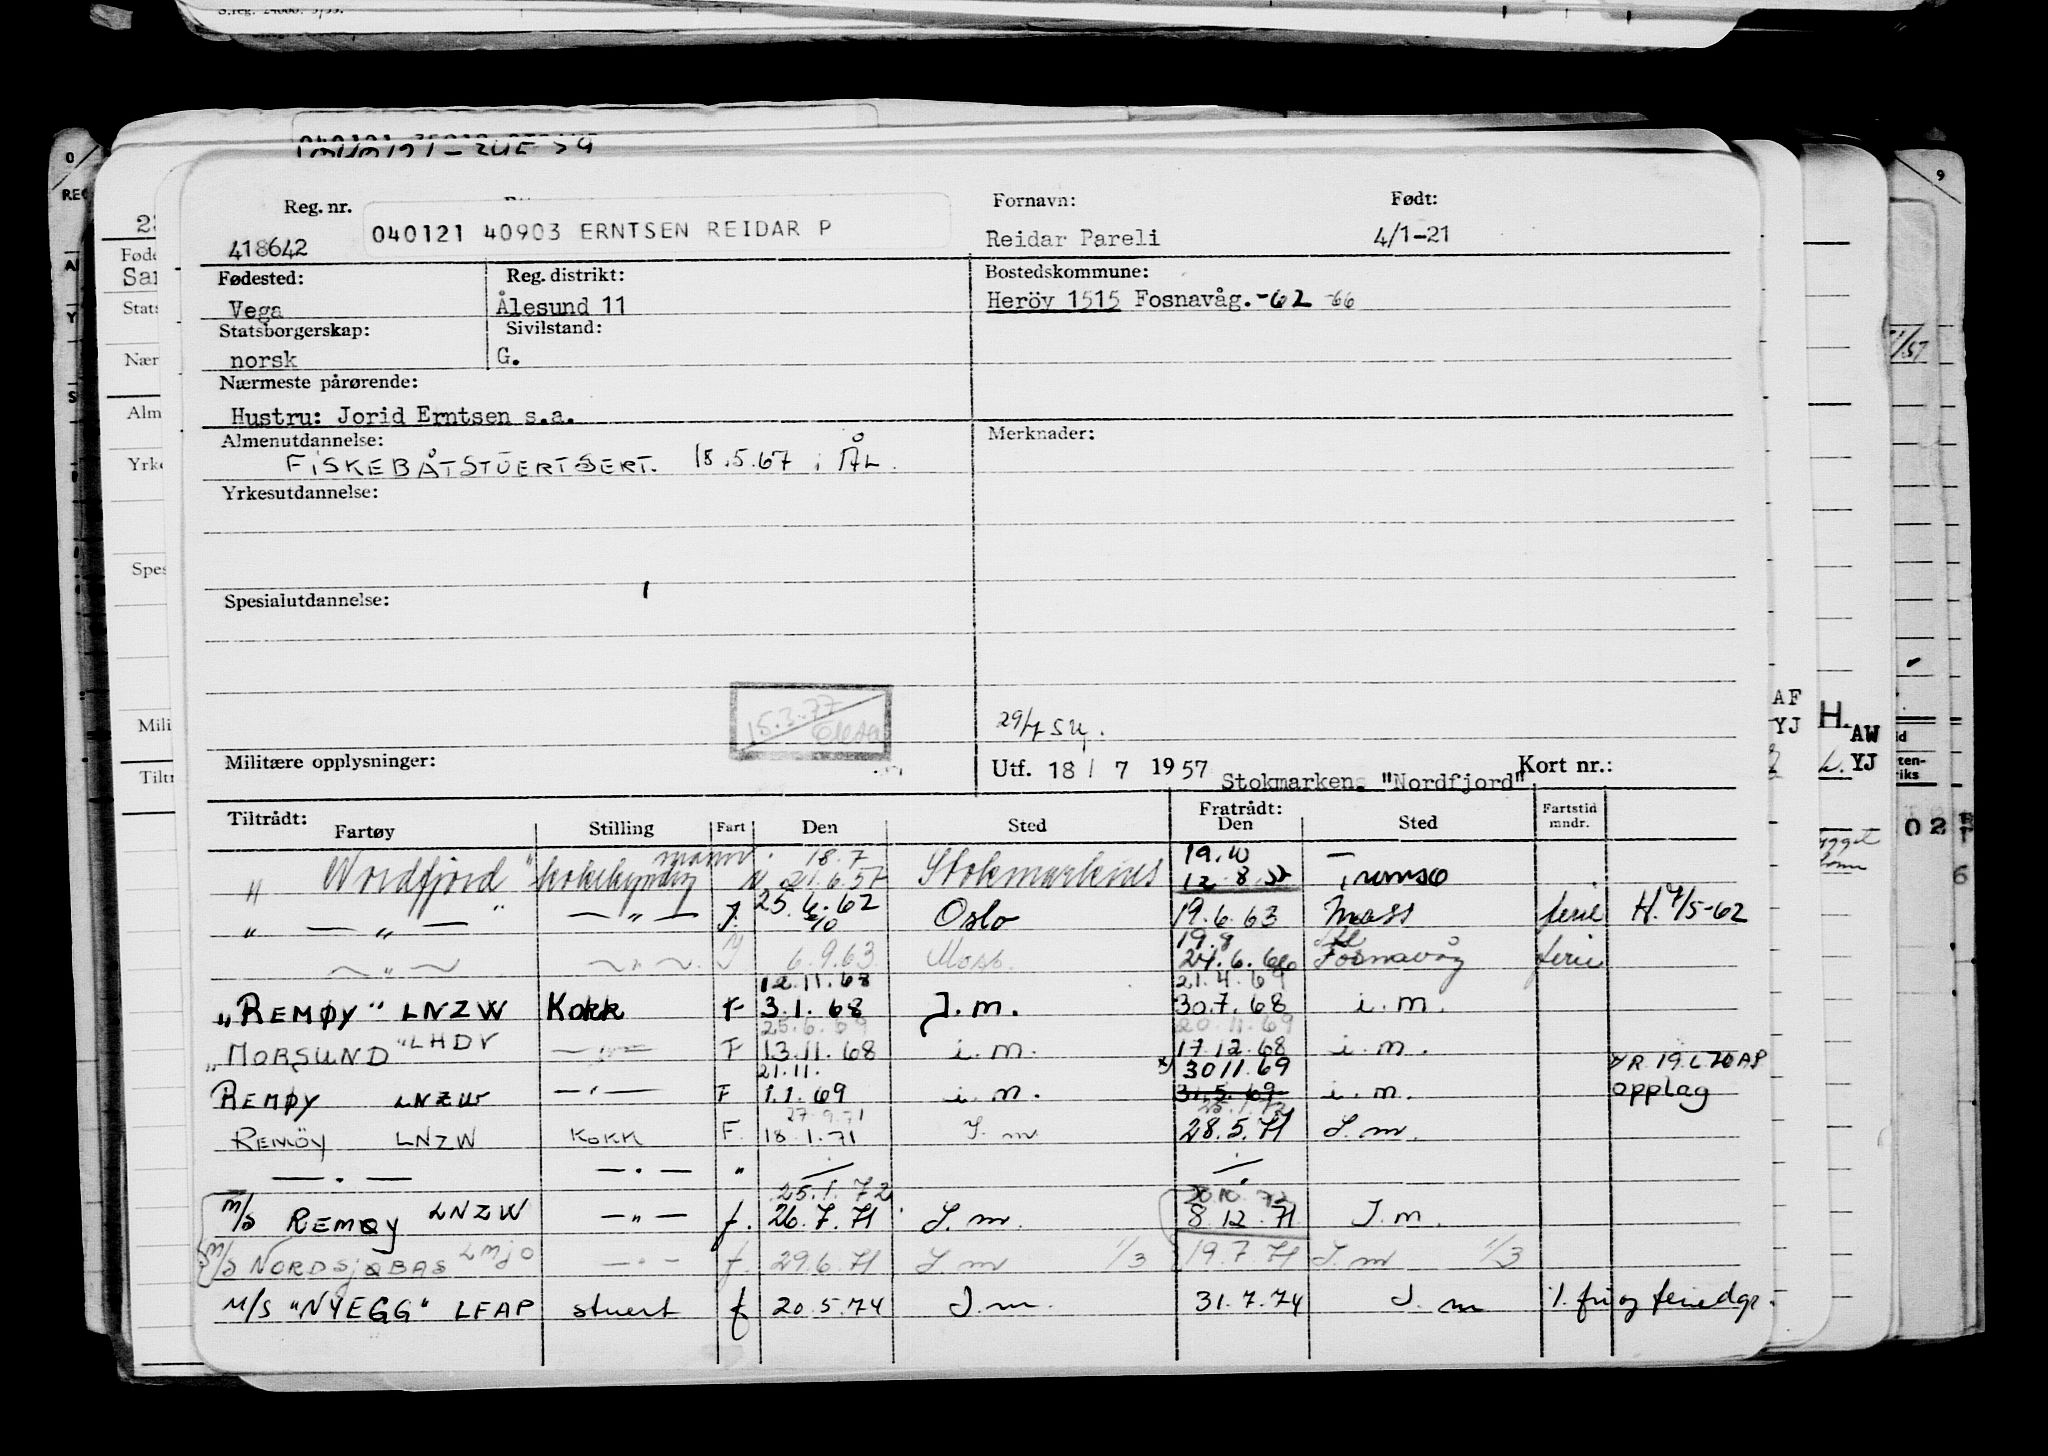 Reg. nr. Fornavn: Født:
418642 040121 40903 ERNTSEN REIDAR P Reidar Pareli 4/1-21
Fødested: Reg. distrikt: Bostedskommune:
Vega Ålesund 11 Herøy 1515 Fosnavåg. -62 -66
Statsborgerskap: Sivilstand:
norsk G.
Nærmeste pårørende:
Hustru: Jorid Erntsen s.a.
Almenutdannelse: Merknader:
FISKEBÅTSTUERTSERT. 18.5.67 i ÅL.
Yrkesutdannelse:
Spesialutdannelse:
15.3.77
29/7 SY.
Militære opplysninger: Utf. 18/7 1957 Kort nr.:
Stokmarken. "Nordfjord"
Tiltrådt: Fratrådt:
Fartøy Stilling Fart Den Sted Den Sted Fartstid mndr.
mann. 18.7 19.10 —
" Nordfjord " kokekyndig N 21.6.57 Stokmarknes 12.8.57 Tromsø
25.6.62
" — " — " — " — J. 5/10 Oslo 19.6.63 Moss ferie H. 4/5-62
19.8
— " — — " — J 6.9.63 Moss. 24.6.66 Fosnavåg ferie
12.11.68 21.4.69
"REMØY" LNZW Kokk F 3.1.68 I.m. 30.7.68 i.m.
25.6.69 20.11.69
"MORSUND" LHDV — " — F 13.11.68 i.m. 17.12.68 i.m.
21.11. x) 30 11.69
REMØY LNZW — " — F 1.1.69 i.m. 31.5.69 i.m. opplag
27.9.71 25.1.72
REMÖY LNZW KOKK F. 18.1.71 I.m 28.5.71 I.m.
— " — — " — "
25.1.72 20.10.72
M/S REMØY LNZW — " — f. 26.7.71 I.m. 8.12.71 I.m.
M/S NORDSJØBAS LMJO — " — f. 29.6.71 I.m 1/3 19.7.71 I.m 1/3
M/S "NYEGG" LFAP stuert f 20.5.74 I.m. 31.7.74 I.m 1. fri og feriedgr.